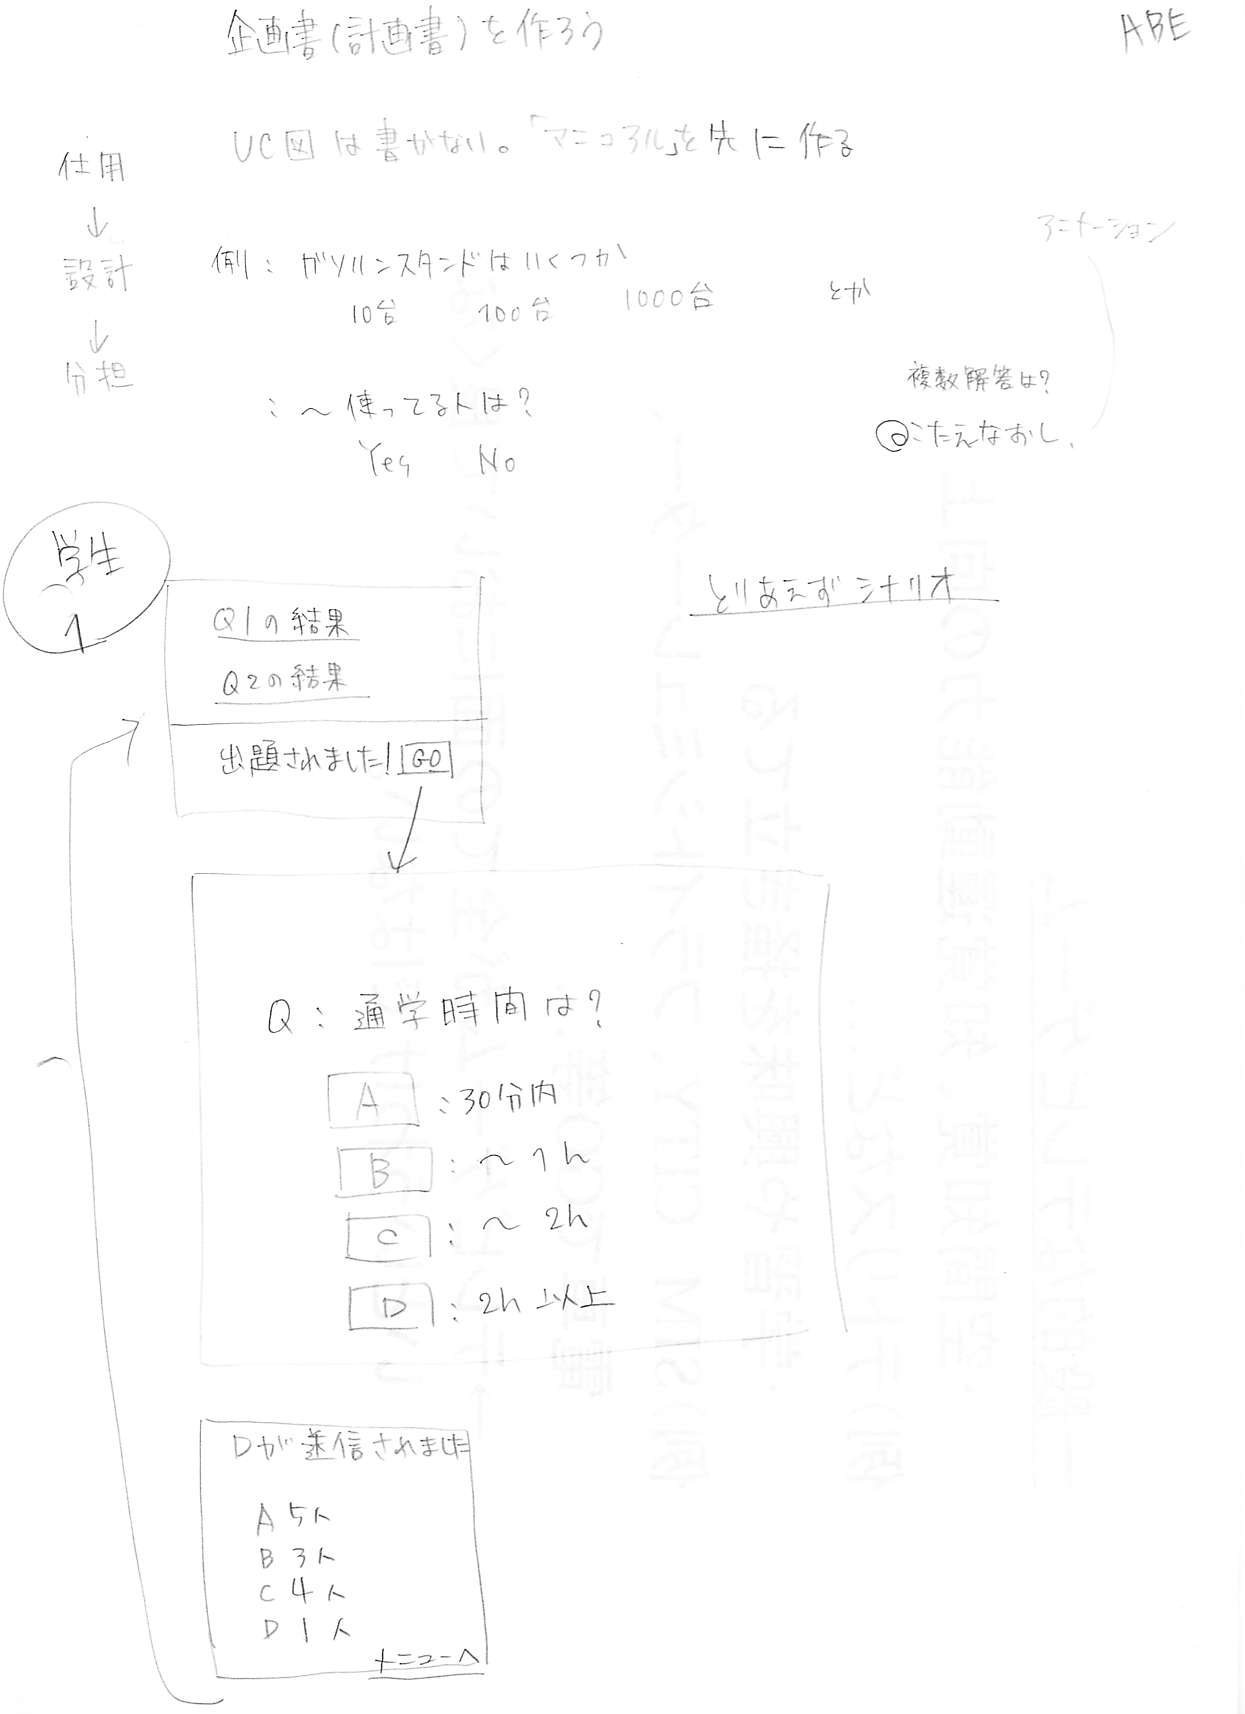 企画書(計画書)を作ろう
ABE
UC図は書かない。「マニュアル」を先に作る
仕用
↓
設計
↓
分担
アニメーション
例: ガソリンスタンドはいくつか
10台 100台 1000台 とか
複数解答は?
こたえなおし.
: 〜使ってる人は?
Yes No
学生
1
とりあえずシナリオ
Q1の結果
Q2の結果
出題されました! GO
Q: 通学時間は?
A :30分内
B :〜1h
C :〜2h
D :2h以上
Dが送信されました
A 5人
B 3人
C 4人
D 1人
メニューへ